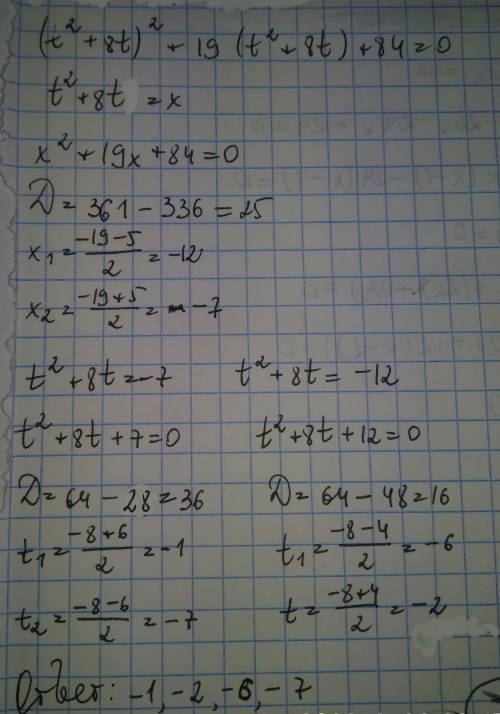 (t² + 8t)² + 19 (t² + 8t) + 84 = 0
t² + 8t = x
x² + 19x + 84 = 0
D = 361 - 336 = 25
x₁ = (-19-5)/2 = -12
x₂ = (-19+5)/2 = -7
t² + 8t = -7
t² + 8t + 7 = 0
D = 64 - 28 = 36
t₁ = (-8+6)/2 = -1
t₂ = (-8-6)/2 = -7
t² + 8t = -12
t² + 8t + 12 = 0
D = 64 - 48 = 16
t₁ = (-8-4)/2 = -6
t = (-8+4)/2 = -2
Ответ: -1, -2, -6, -7